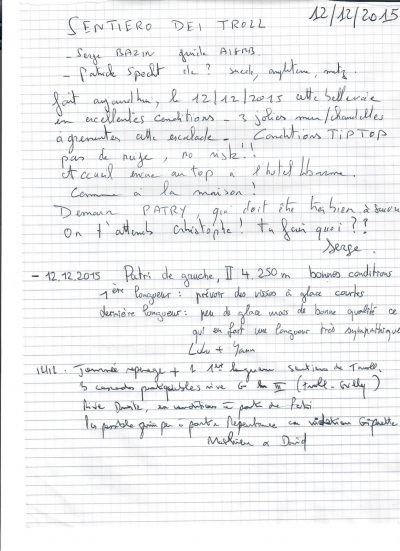 12/12/2015
SENTIERO DEI TROLL
- Serge BAZIN guide
- Patrick Specht de ?
fait aujourd'hui, le 12/12/2015 cette belle voie
en excellentes conditions - 3 jolies
à agrementer cette escalade - Conditions TIP TOP
pas de neige, no risk !!
et accueil encore au top à l'hotel
Comme à la maison !
Demain PATRY, qui doit être très bien à suivre
On t'attends Christophe ! tu fais quoi ??
Serge.
- 12.12.2015 Patri de gauche, II 4, 250 m bonnes conditions
1ère longueur : prévoir des visses à glace courtes
dernière longueur : peu de glace mais de bonne qualité ce
qui en fait une longueur très sympathique
Lulu + Yann
Journée repérage + la 1ère longueur sentiero de Troll.
3 cascades pratiquables rive G
Rive Droite, en conditions à partir de Patri
pas possible grimper à partir Repentance
Mathieu & David